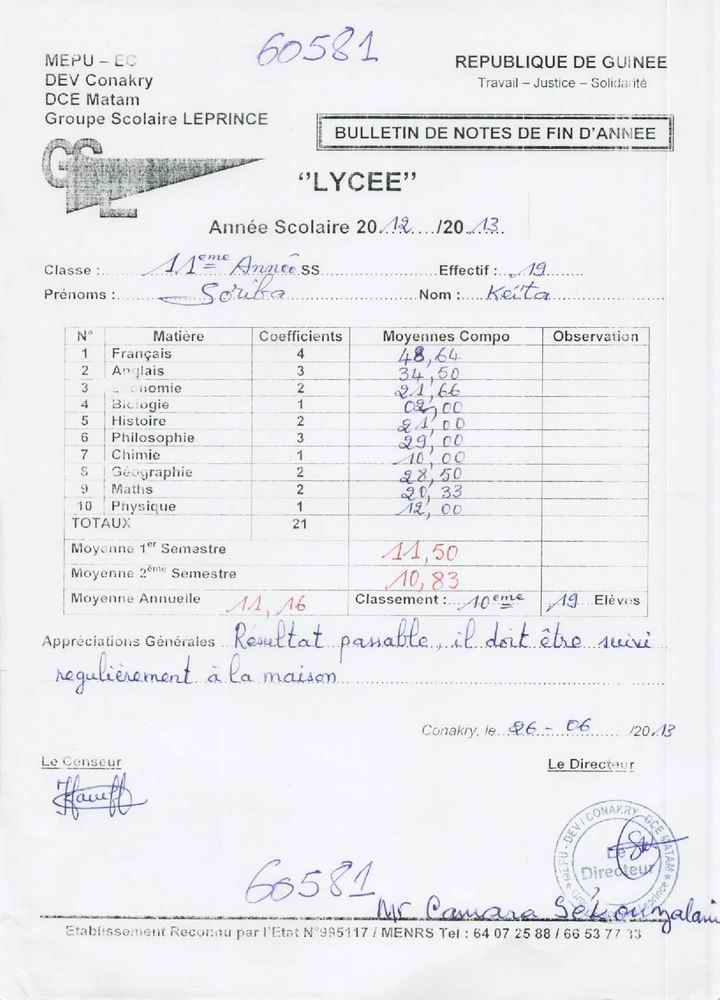 60581
MEPU – EC
DEV Conakry
DCE Matam
Groupe Scolaire LEPRINCE
REPUBLIQUE DE GUINEE
Travail – Justice – Solidarité
BULLETIN DE NOTES DE FIN D'ANNEE
"LYCEE"
Année Scolaire 2012/2013
Classe : 11eme Année SS Effectif : 19
Prénoms : Soriba Nom : Keïta
N° Matière Coefficients Moyennes Compo Observation
1 Français 4 48,64
2 Anglais 3 34,50
3 Economie 2 21,66
4 Biologie 1 02,00
5 Histoire 2 21,00
6 Philosophie 3 29,00
7 Chimie 1 10,00
8 Géographie 2 28,50
9 Maths 2 20,33
10 Physique 1 12,00
TOTAUX 21
Moyenne 1er Semestre 11,50
Moyenne 2ème Semestre 10,83
Moyenne Annuelle 11,16 Classement : 10eme 19 Elèves
Appréciations Générales Résultat passable, il doit être suivi
regulièrement à la maison
Conakry, le 26 - 06 /2013
Le Censeur
Le Directeur
MEPU - DEV / CONAKRY - DCE MATAM
Le
Directeur
60581
Mr Camara Sékouzalani
Etablissement Reconnu par l'Etat N°995117 / MENRS Tel : 64 07 25 88 / 66 53 77 33